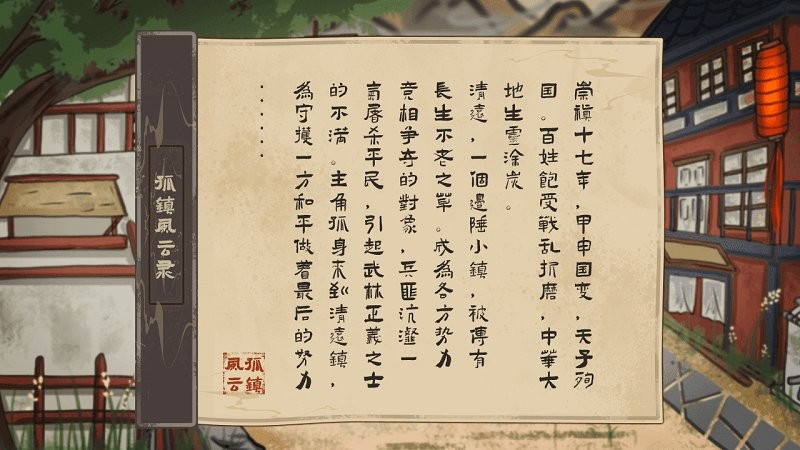 崇禎十七年，甲申国变，天子殉
国。百姓飽受戰乱折磨，中華大
地生靈涂炭。
清遠，一個邊陲小鎮，被傳有
長生不老之草。成為各方势力
竞相争夺的對象，兵匪沆瀣一
氣屠杀平民，引起武林正義之士
的不满。主角孤身来到清遠鎮，
為守護一方和平做着最后的努力
......
孤鎮
風云
孤鎮風云录